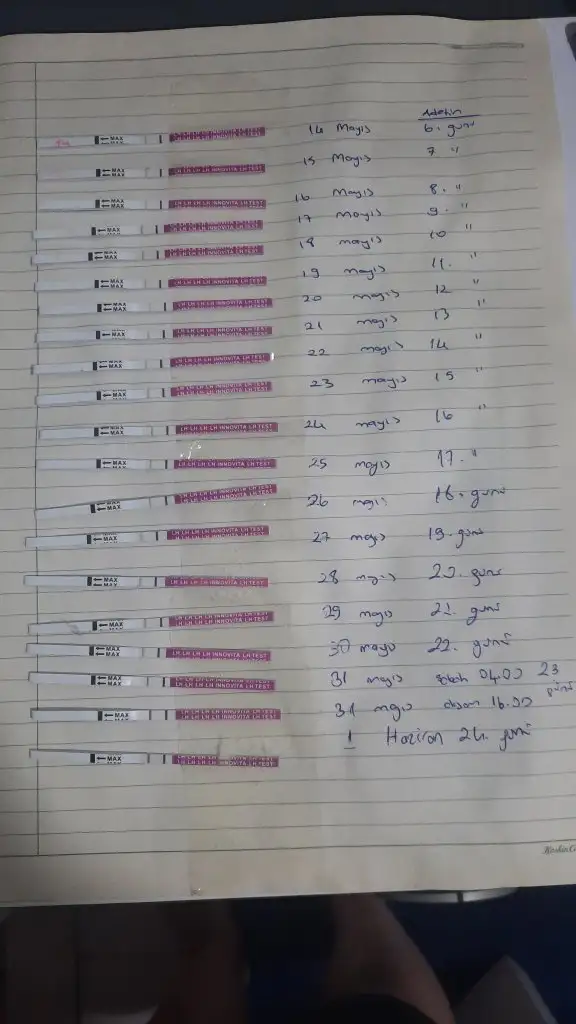 Adetin
MAX LH LH LH LH INNOVITA LH TEST 14 Mayıs 6. günü
MAX LH LH LH LH INNOVITA LH TEST 15 Mayıs 7 "
MAX LH LH LH LH INNOVITA LH TEST 16 Mayıs 8. "
MAX LH LH LH LH INNOVITA LH TEST 17 Mayıs 9. "
MAX LH LH LH LH INNOVITA LH TEST 18 mayıs 10 "
MAX LH LH LH LH INNOVITA LH TEST 19 mayıs 11. "
MAX LH LH LH LH INNOVITA LH TEST 20 mayıs 12 "
MAX LH LH LH LH INNOVITA LH TEST 21 mayıs 13 "
MAX LH LH LH LH INNOVITA LH TEST 22 mayıs 14 "
MAX LH LH LH LH INNOVITA LH TEST 23 mayıs 15 "
MAX LH LH LH LH INNOVITA LH TEST 24 mayıs 16 "
MAX LH LH LH LH INNOVITA LH TEST 25 mayıs 17. "
MAX LH LH LH LH INNOVITA LH TEST 26 mayıs 18. günü
MAX LH LH LH LH INNOVITA LH TEST 27 mayıs 19. günü
MAX LH LH LH LH INNOVITA LH TEST 28 mayıs 20. günü
MAX LH LH LH LH INNOVITA LH TEST 29 mayıs 21. günü
MAX LH LH LH LH INNOVITA LH TEST 30 mayıs 22. günü
MAX LH LH LH LH INNOVITA LH TEST 31 mayıs sabah 04.00 23
günü
MAX LH LH LH LH INNOVITA LH TEST 31 mayıs akşam 16.00
MAX LH LH LH LH INNOVITA LH TEST 1 Haziran 24. günü